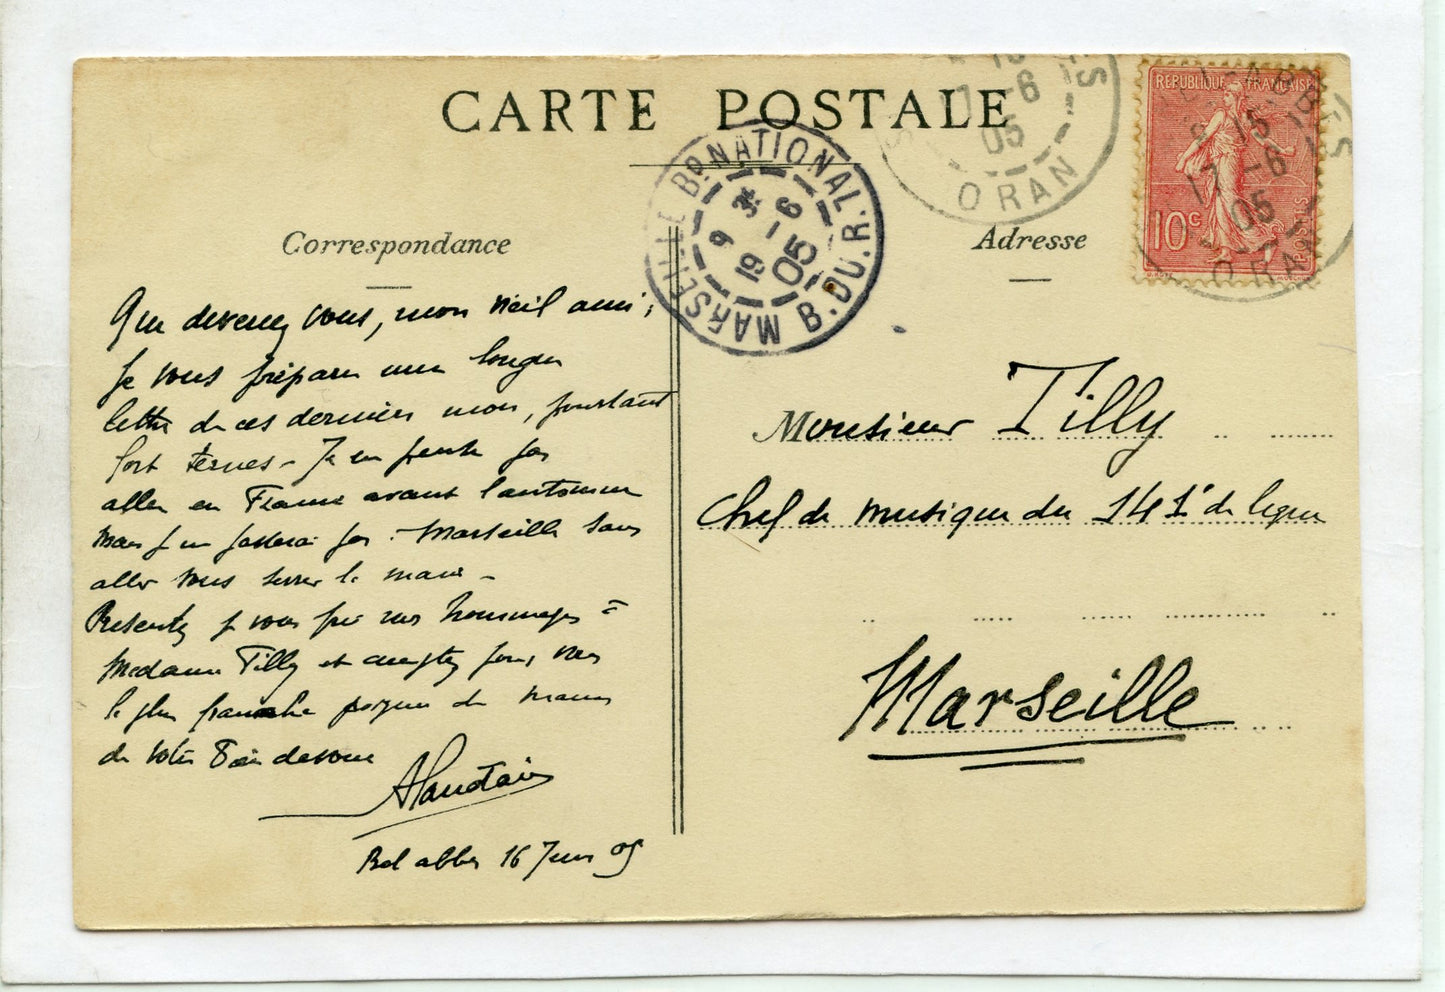 CARTE POSTALE
Correspondance
Que devenez vous, mon vieil ami,
Je vous prépare une longue
lettre de ces derniers mois, pourtant
fort ternes - Je ne pense pas
aller en France avant l'automne
Mais je ne passerai pas Marseille sans
aller vous serrer la main -
Présentez je vous prie mes hommages à
Madame Tilly et acceptez pour vous
la plus franche poignée de mains
de votre bien dévoué
Bel abbes 16 Juin 05
MARSEILLE Bd. NATIONAL
B. DU. R.
9
19 -6
05
7 -6
05
ORAN
Adresse
REPUBLIQUE FRANÇAISE
10c
POSTES
BEL-ABBES
15
17 -6
05
ORAN
Monsieur Tilly
Chef de musique du 141e de ligne
Marseille